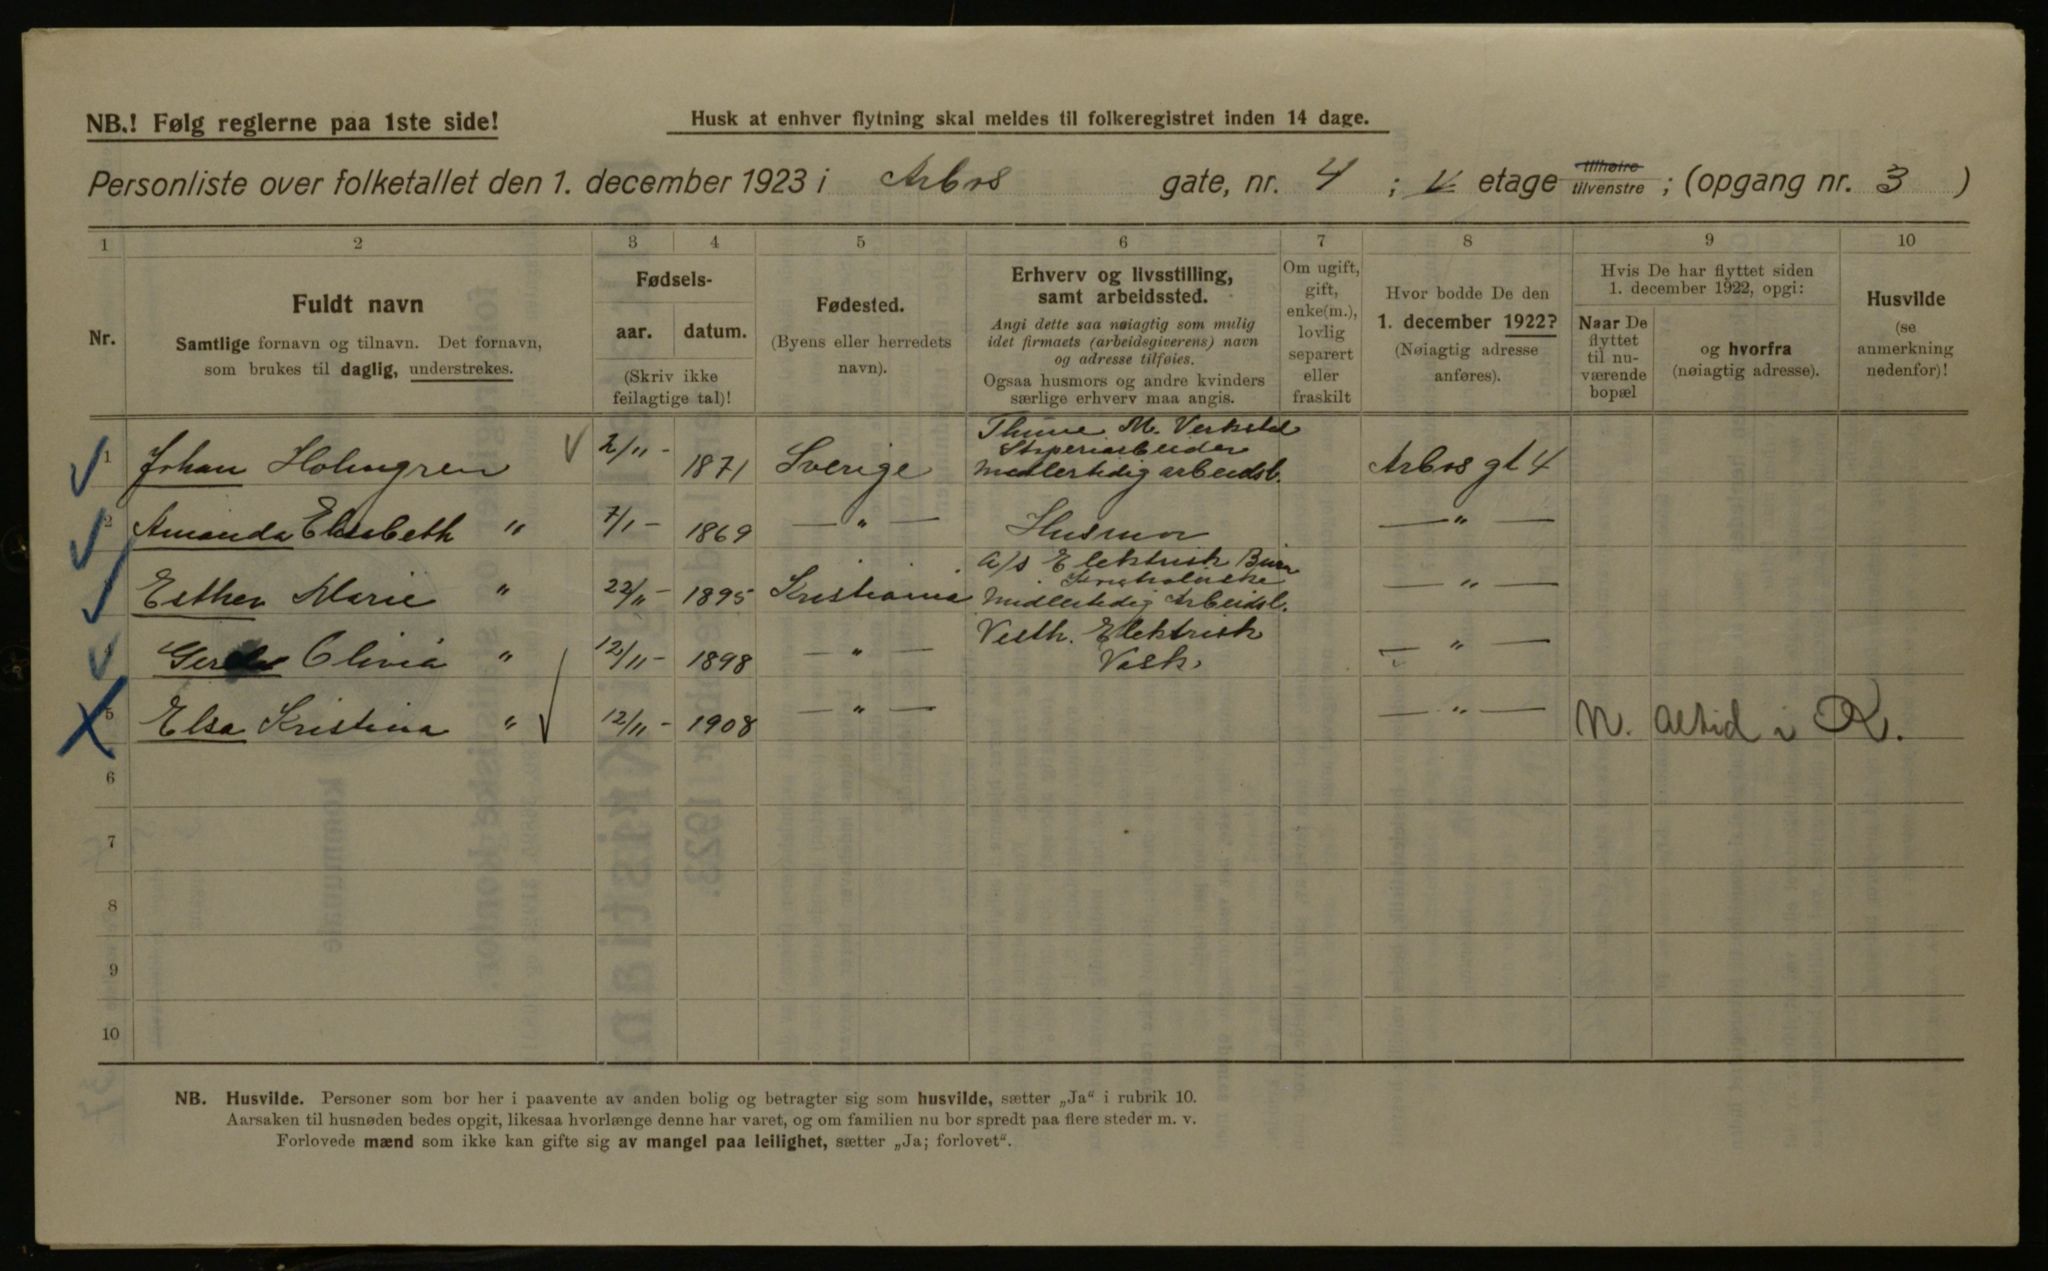 NB.! Følg reglerne paa 1ste side!
Husk at enhver flytning skal meldes til folkeregistret inden 14 dage.
Personliste over folketallet den 1. december 1923 i Arbos gate, nr. 4 ; V etage tilhøire tilvenstre ; (opgang nr. 3 )
1 2 3 4 5 6 7 8 9 10
Nr.
Fuldt navn
Samtlige fornavn og tilnavn. Det fornavn,
som brukes til daglig, understrekes.
Fødsels-
aar. datum.
(Skriv ikke
feilagtige tal)!
Fødested.
(Byens eller herredets
navn).
Erhverv og livsstilling,
samt arbeidssted.
Angi dette saa nøiagtig som mulig
idet firmaets (arbeidsgiverens) navn
og adresse tilføies.
Ogsaa husmors og andre kvinders
særlige erhverv maa angis.
Om ugift,
gift,
enke(m.),
lovlig
separert
eller
fraskilt
Hvor bodde De den
1. december 1922?
(Nøiagtig adresse
anføres).
Hvis De har flyttet siden
1. december 1922, opgi:
Naar De
flyttet
til nu-
værende
bopæl
og hvorfra
(nøiagtig adresse).
Husvilde
(se
anmerkning
nedenfor)!
Thune M. Verksted
Støperiarbeider
1 Johan Holmgren 2/11 - 1871 Sverige Midlertidig arbeidsl. Arbos gt 4
2 Amanda Elisabeth " 7/1 - 1869 — " — Husmor — " —
A/S Elektrisk
3 Esther Marie " 22/11 - 1895 Kristiania Midlertidig Arbeidsl. — " —
Vesth. Elektrisk
4 Gerda Olivia " 12/11 - 1898 — " — Vask. — " —
5 Elsa Kristina " 12/11 - 1908 — " — — " — N. altid i K.
6
7
8
9
10
NB. Husvilde. Personer som bor her i paavente av anden bolig og betragter sig som husvilde, sætter „Ja“ i rubrik 10.
Aarsaken til husnøden bedes opgit, likesaa hvorlænge denne har varet, og om familien nu bor spredt paa flere steder m. v.
Forlovede mænd som ikke kan gifte sig av mangel paa leilighet, sætter „Ja; forlovet“.